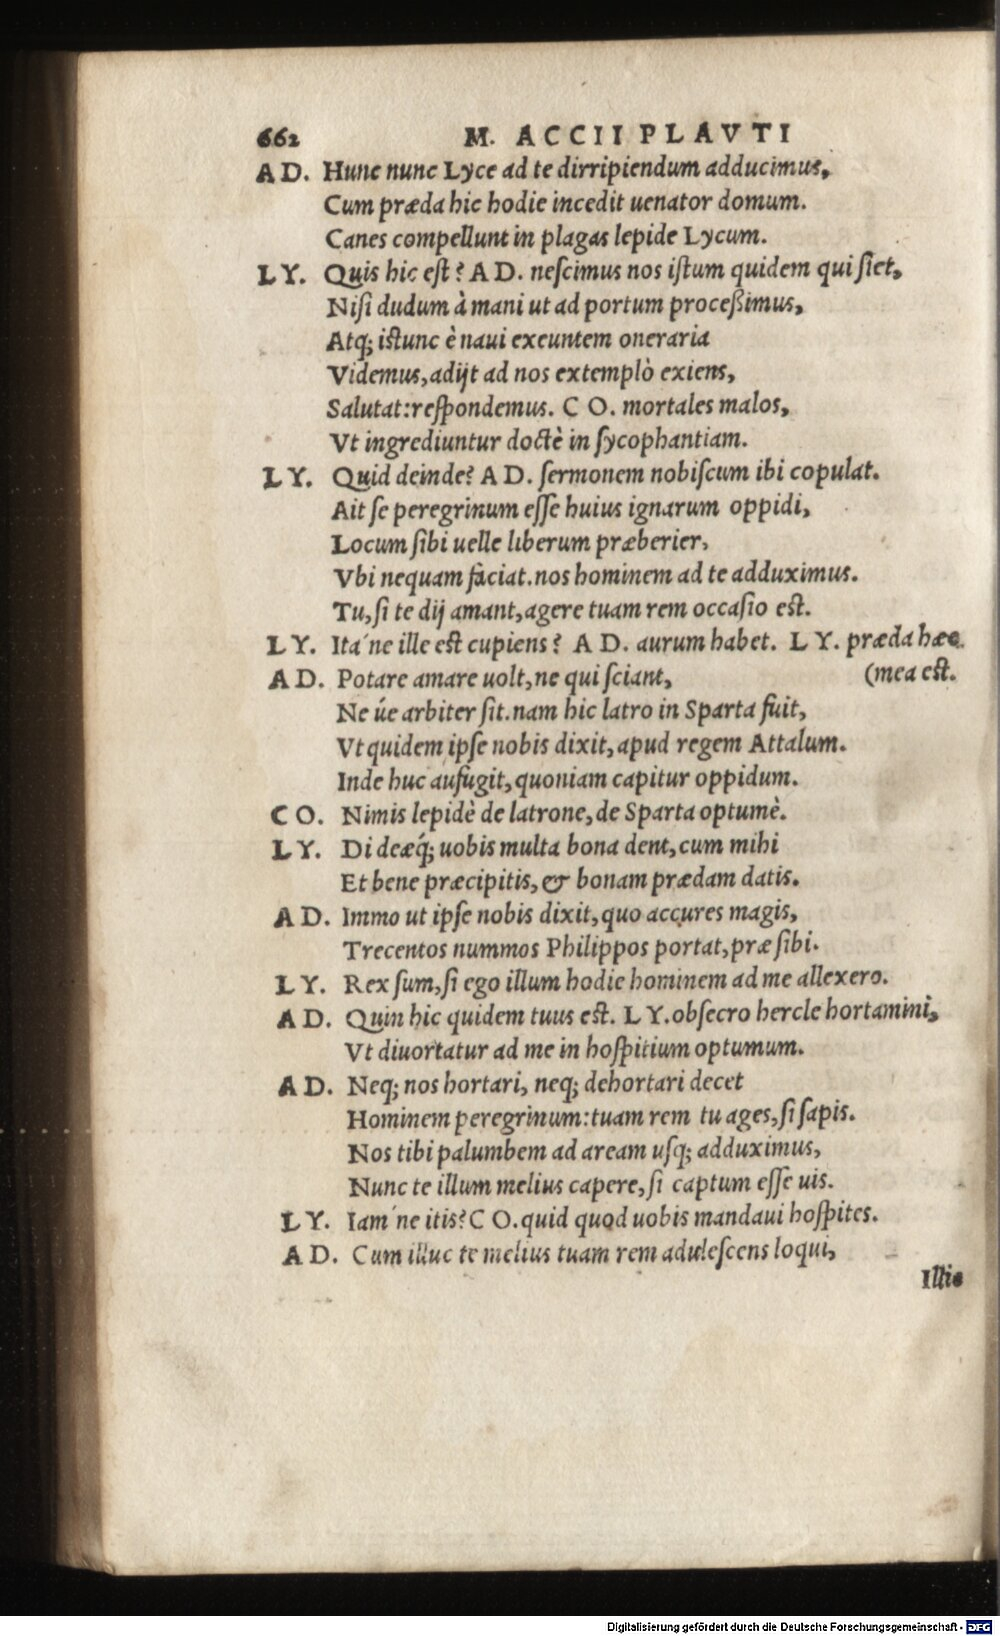 662 M. ACCII PLAVTI
AD. Hunc nunc Lyce ad te dirripiendum adducimus,
Cum præda hic hodie incedit uenator domum.
Canes compellunt in plagas lepide Lycum.
LY. Quis hic eſt? AD. neſcimus nos iſtum quidem qui ſiet,
Niſi dudum à mani ut ad portum proceßimus,
Atq; iſtunc è naui exeuntem oneraria
Videmus, adijt ad nos extemplò exiens,
Salutat: reſpondemus. CO. mortales malos,
Vt ingrediuntur doctè in ſycophantiam.
LY. Quid deinde? AD. ſermonem nobiſcum ibi copulat.
Ait ſe peregrinum eſſe huius ignarum oppidi,
Locum ſibi uelle liberum præberier,
Vbi nequam faciat. nos hominem ad te adduximus.
Tu, ſi te dij amant, agere tuam rem occaſio eſt.
LY. Ita´ne ille eſt cupiens? AD. aurum habet. LY. præda hæc
AD. Potare amare uolt, ne qui ſciant, (mea eſt.
Ne úe arbiter ſit. nam hic latro in Sparta fuit,
Vt quidem ipſe nobis dixit, apud regem Attalum.
Inde huc aufugit, quoniam capitur oppidum.
CO. Nimis lepidè de latrone, de Sparta optumè.
LY. Di deæq́; uobis multa bona dent, cum mihi
Et bene præcipitis, & bonam prædam datis.
AD. Immo ut ipſe nobis dixit, quo accures magis,
Trecentos nummos Philippos portat, præ ſibi.
LY. Rex ſum, ſi ego illum hodie hominem ad me allexero.
AD. Quin hic quidem tuus eſt. LY. obſecro hercle hortamini,
Vt diuortatur ad me in hoſpitium optumum.
AD. Neq; nos hortari, neq; dehortari decet
Hominem peregrinum: tuam rem tu ages, ſi ſapis.
Nos tibi palumbem ad aream uſq; adduximus,
Nunc te illum melius capere, ſi captum eſſe uis.
LY. Iam´ne itis? CO. quid quod uobis mandaui hoſpites.
AD. Cum illuc te melius tuam rem aduleſcens loqui,
Illic
Digitalisierung gefördert durch die Deutsche Forschungsgemeinschaft - DFG